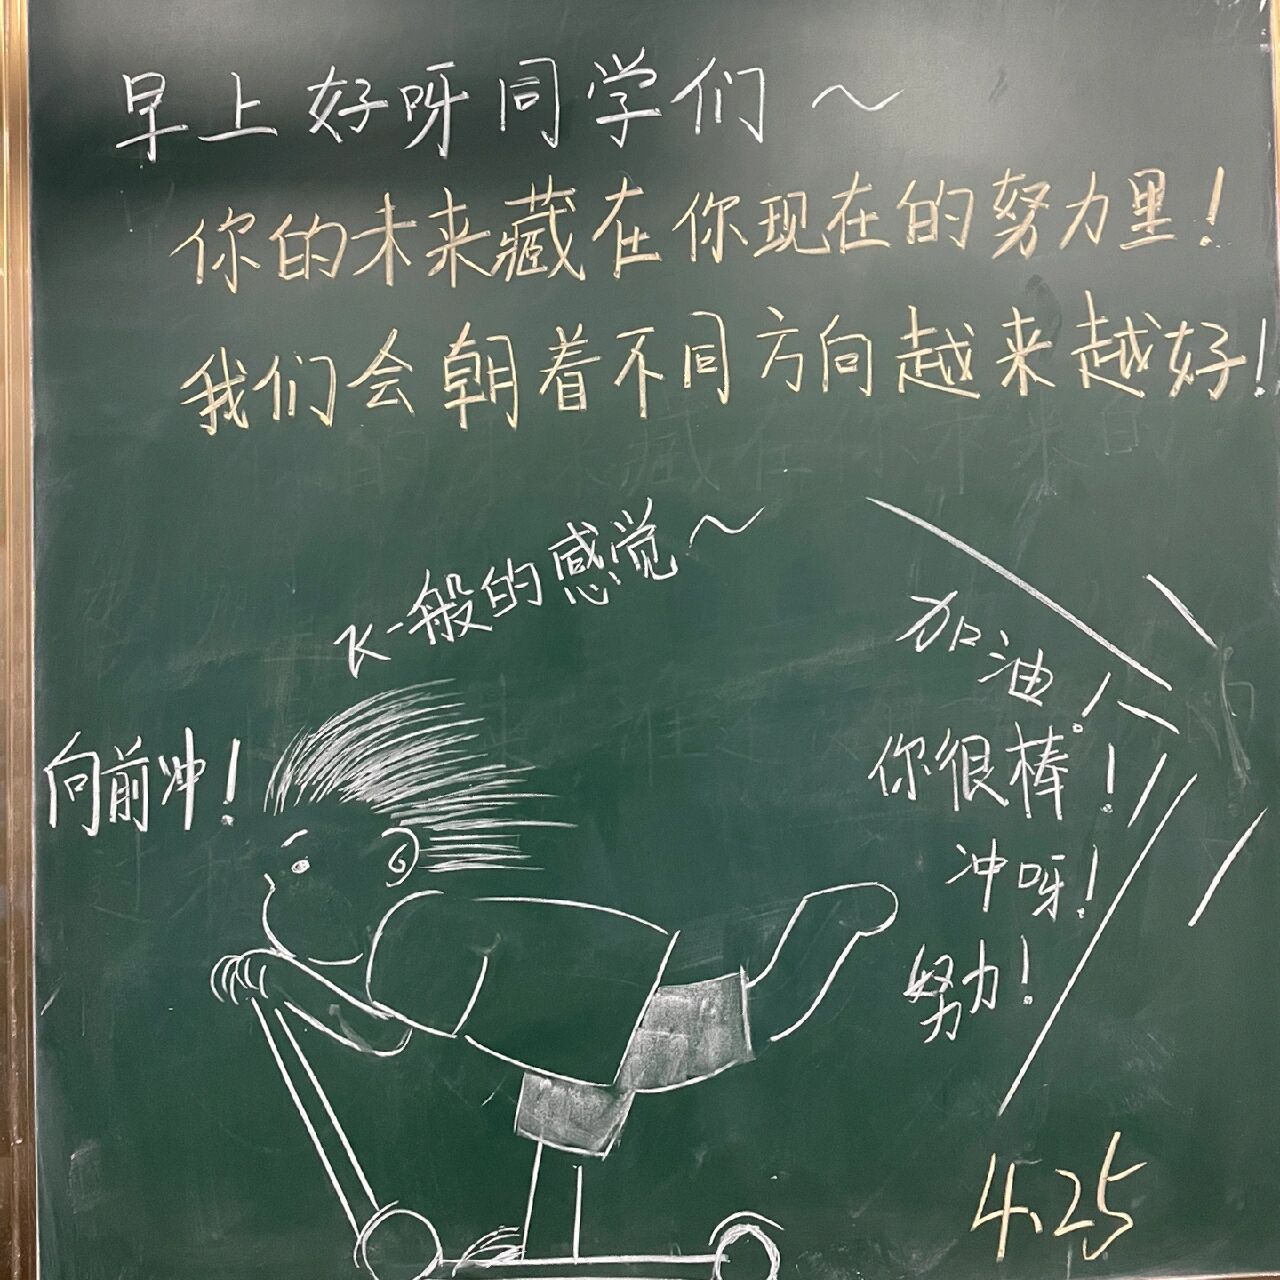 早上好呀同学们～
你的未来藏在你现在的努力里！
我们会朝着不同方向越来越好！
飞一般的感觉～
向前冲！
加油！
你很棒！
冲呀！
努力！
4.25